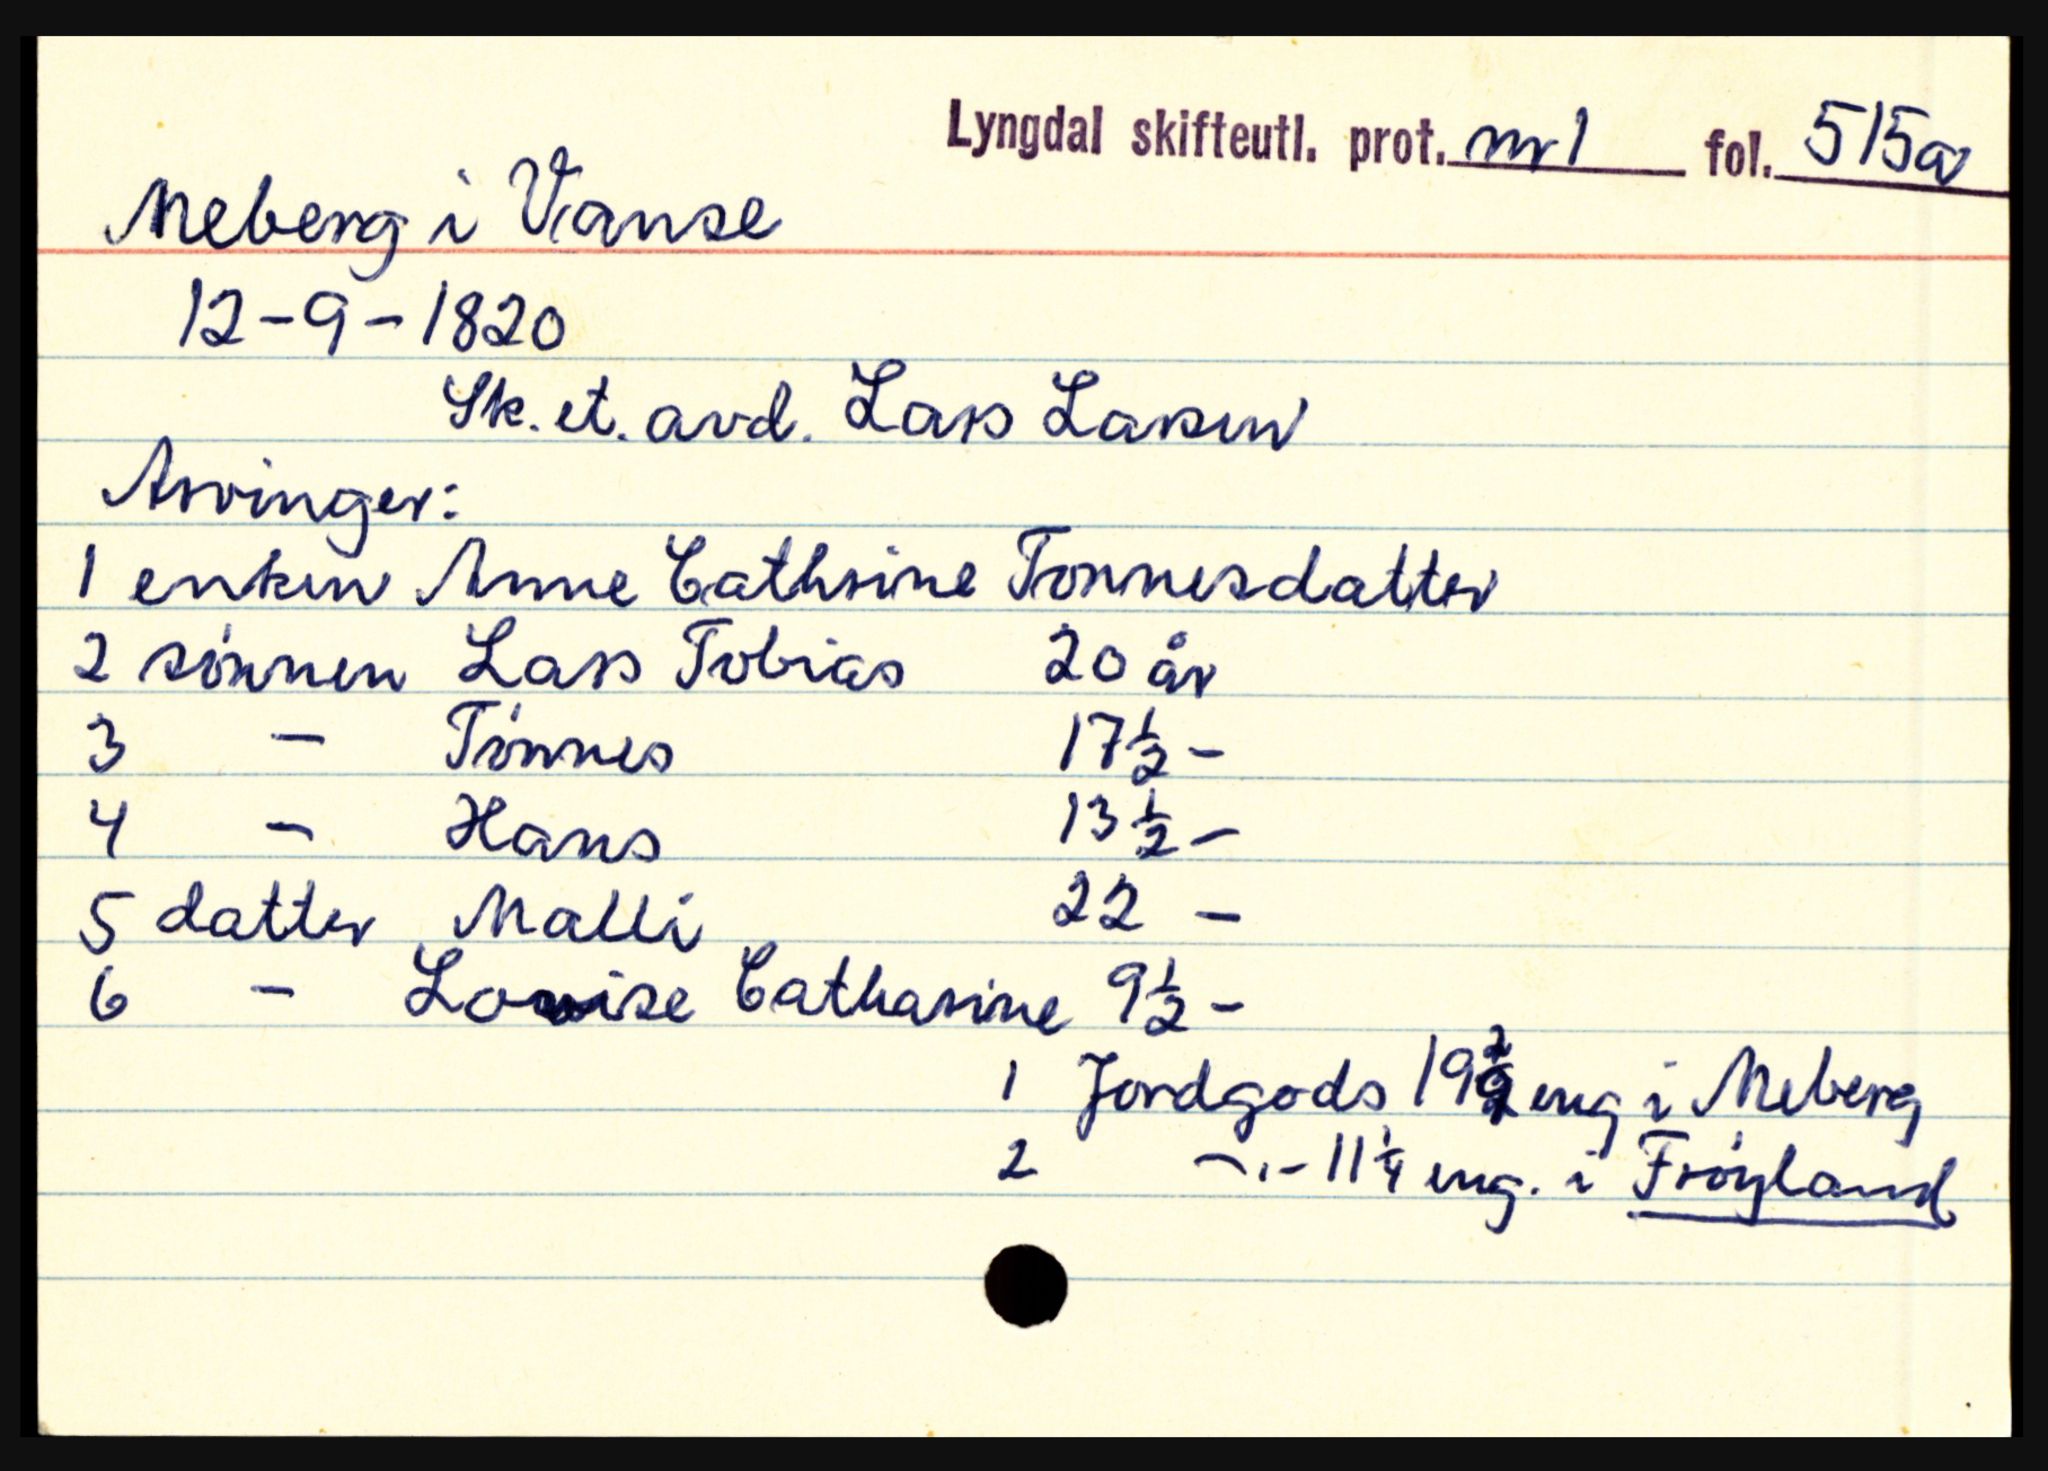 Lyngdal skifteutl. prot. nr 1 fol. 515a
Meberg i Vanse
12-9-1820
Sk. et. avd. Lars Larsen
Arvinger:
1 enken Anne Cathrine Tonnesdatter
2 sønnen Lars Tobias 20 år
3 - Tønnes 17½ -
4 - Hans 13½ -
5 datter Malli 22 -
6 - Lovise Catharine 9½ -
1 Jordgods 19 eng i Meberg
2 -.- 11¼ eng. i Frøyland